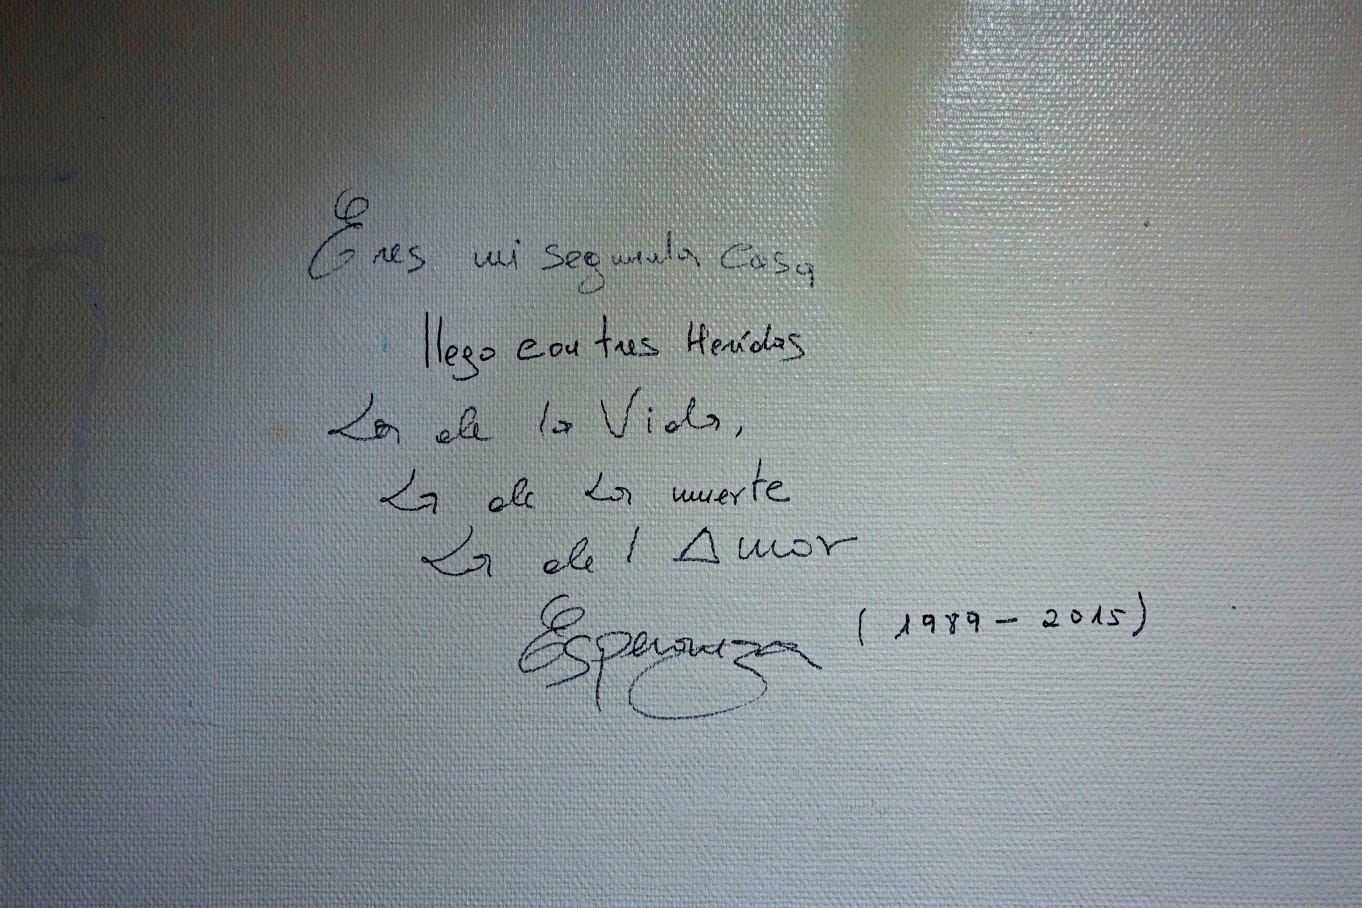 Eres mi segunda Casa
llego con tres Heridas
La de la Vida,
La de La muerte
La del Amor
Esperanza (1989 - 2015)